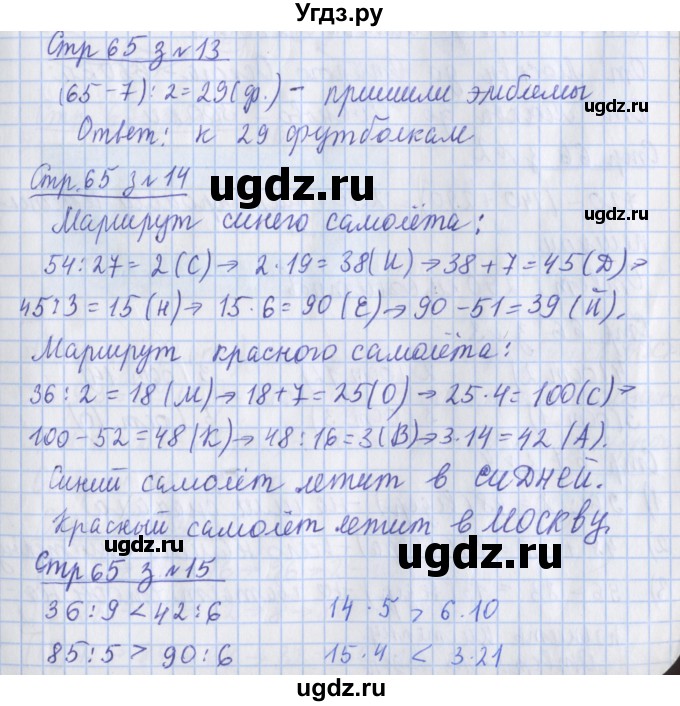 Угдз.ру
Стр 65 з №13
(65-7):2=29(ф.) - пришили эмблемы
ugdz.ru
Ответ: к 29 футболкам
ugdz.ru
Стр. 65 з №14
ugdz.ru
ugdz.ru
Маршрут синего самолёта:
54:27=2(С)→ 2·19=38(И)→38+7=45(Д)→
45:3=15(Н)→ 15·6=90(Е)→90-51=39(Й).
Маршрут красного самолёта:
36:2=18(М)→18+7=25(О)→25·4=100(С)→
100-52=48(К)→48:16=3(В)→3·14=42(А).
Синий самолёт летит в СИДНЕЙ.
Красный самолёт летит в МОСКВУ.
ugdz.ru
ugdz.ru
Стр 65 з №15
36:9<42:6 14·5>6·10
85:5>90:6 15·4<3·21
ugdz.ru